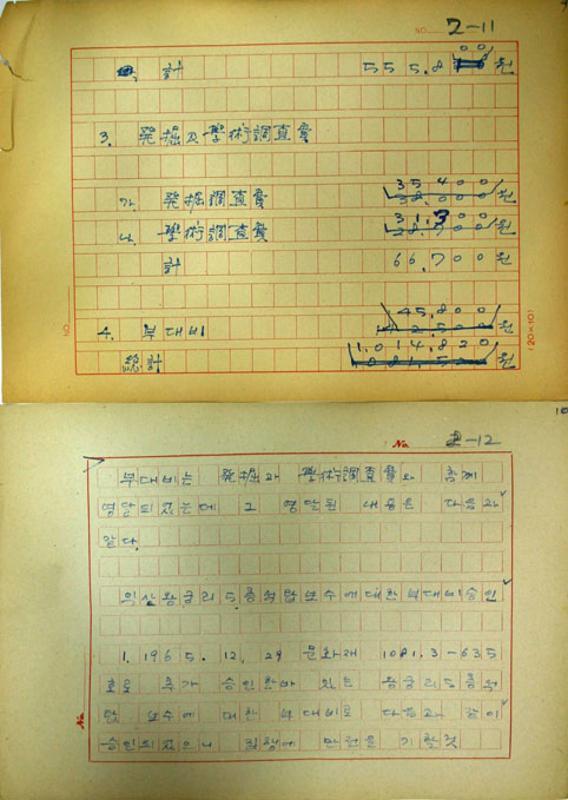 NO. 2-11
計 555.800 원
3. 発掘及学術調査費
가. 発掘調査費 35400 38,000 원
나. 学術調査費 31,300 28,700 원
計 66,700 원
4. 부대비 45,800 42,500 원
総計 1,014,820 1,081,520 원
NO.
(20×10)
10
No. 2-12
부대비는 発掘과 学術調査費와 함께
영달되였는데 그 영달된 내용은 다음과
같다
익산왕궁리5층석탑보수에대한부대비승인
1. 1965. 12. 29 문화재 1081.3-635
호로 추가 승인한바 있는 왕궁리5층석
탑 보수에 대한 부대비로 다음과 같이
승인되였으니 집행에 만전을 기할것
No.